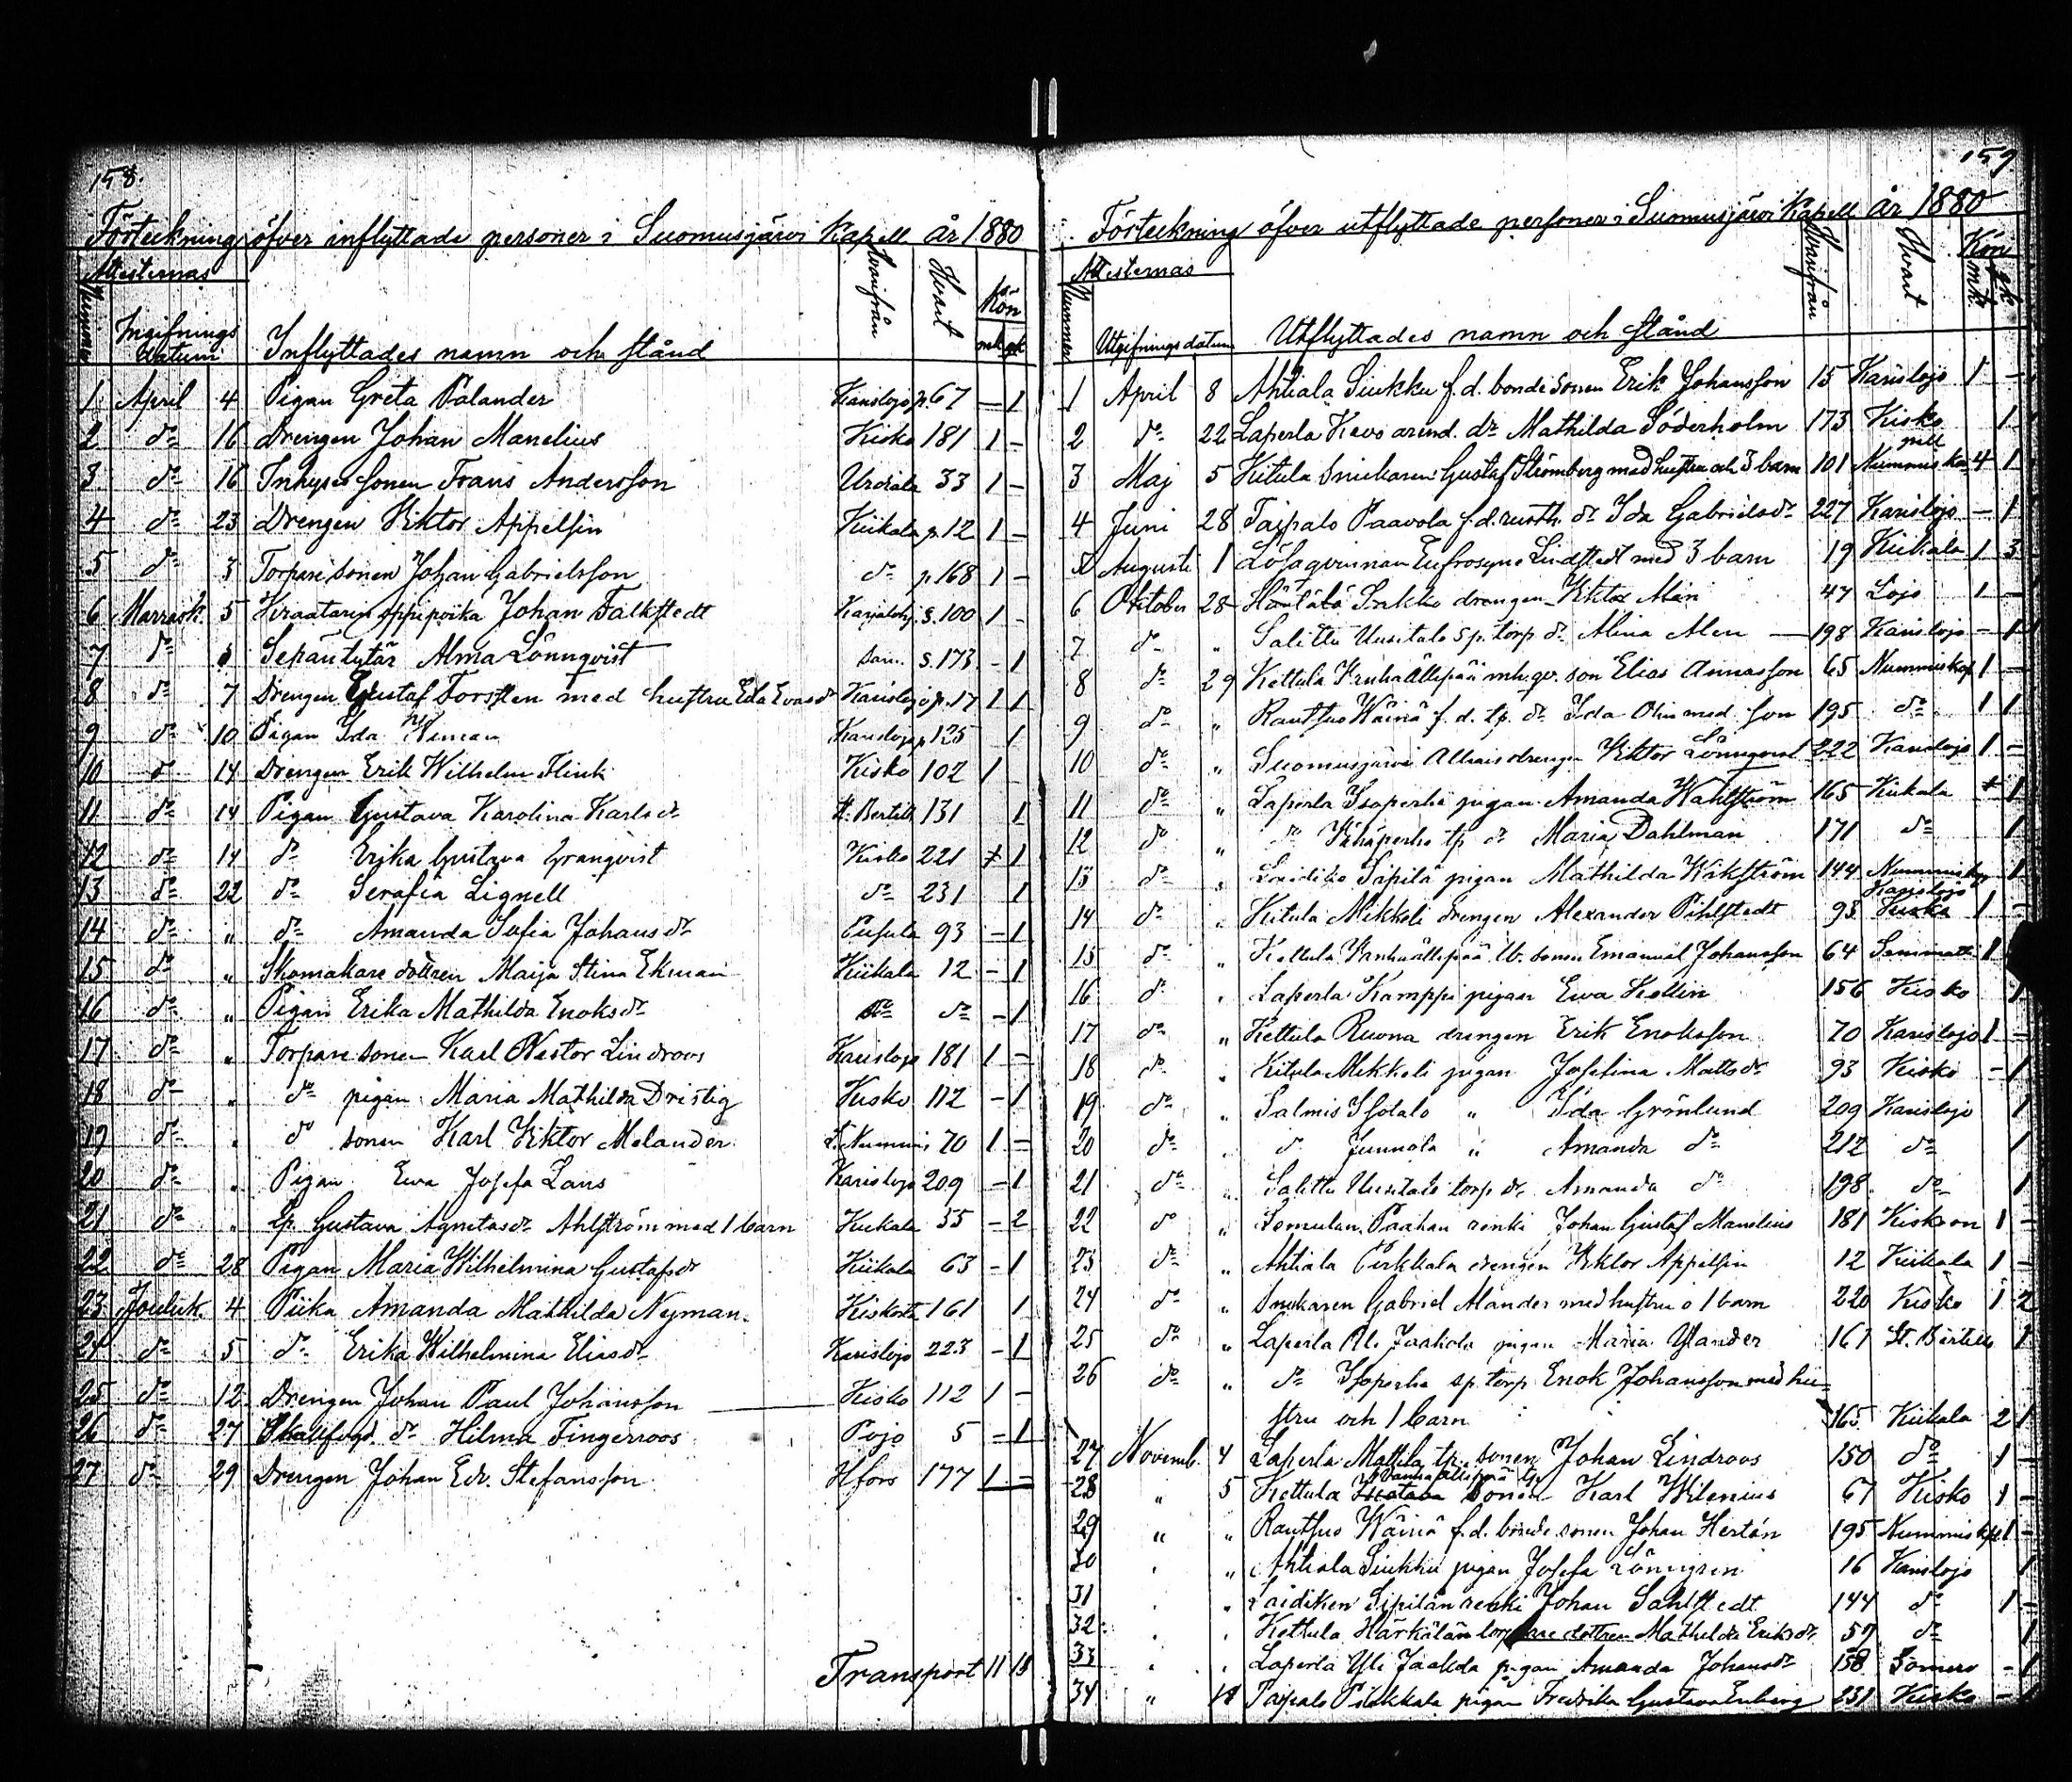 158.
Förteckning öfver inflyttade personer i Suomusjärvi Kapell år 1880
Attesternas
Nummer
Ingifnings datum
Inflyttades namn och stånd
Hvarifrån
Hvart
Kön
mk qk
1 April 4 Pigan Greta Palander Karislojo p. 67 – 1
2 do 16 Drengen Johan Manelius Kisko 181 1 –
3 do 16 Inhyses sonen Frans Andersson Urdiala 33 1 –
4 do 23 Drengen Viktor Appelsin Kiikala p. 12 1 –
5 do 3 Torpare sonen Johan Gabrielsson do p. 168 1 –
6 Marrask. 5 Kraatarin oppipoika Johan Falkstedt Karjaloh. s. 100 1 –
7 do Sepäntytär Alma Lönnqvist sam. s. 173 – 1
8 do 7 Drengen Gustaf Forsten med hustru Eda Evasdr Karislojo p. 17 1 1
9 do 10 Pigan Ida Karislojo p. 125 1
10 do 14 Drengen Erik Wilhelm Flink Kisko 102 1
11 do 14 Pigan Gustava Karolina Karlsdr St. Bertils 131 1
12 do 14 do Erika Gustava Granqvist Kisko 221 1
13 do 22 do Serafia Lignell do 231 1
14 do " do Amanda Sofia Johansdr Pusula 93 – 1
15 do " Skomakare dottren Maija Stina Ekman Kiikala 12 – 1
16 do " Pigan Erika Mathilda Enoksdr do do – 1
17 do " Torpare sonen Karl Nestor Lindroos Karislojo 181 1 –
18 do " do pigan Maria Mathilda Dristig Kisko 112 – 1
19 do " do sonen Karl Viktor Melander Nummi 70 1 –
20 do " Pigan Ewa Josefa Lans Karislojo 209 – 1
21 do " Sp. Gustava Agnetasdr Ahlström med 1 barn Kiikala 55 – 2
22 do 28 Pigan Maria Wilhelmina Gustafsdr Kiikala 63 – 1
23 Jouluk. 4 Piika Amanda Mathilda Nyman Kiskosta 161 1
24 do 5 do Erika Wilhelmina Eliasdr Karislojo 223 – 1
25 do 12 Drengen Johan Paul Johansson Kisko 112 1 –
26 do 27 Skallfogd. dr Hilma Fingerroos Pojo 5 – 1
27 do 29 Drengen Johan Edv. Stefansson Hfors 177 1 –
Transport 11 18
159
Förteckning öfver utflyttade personer i Suomusjärvi Kapell år 1880
Attesternas
Nummer
Utgifningsdatum
Utflyttades namn och stånd
Hvarifrån
Hvart
Kön
mk. qk
1 April 8 Ahtiala Siukku f.d. bonde sonen Erik Johansson 15 Karislojo 1 –
2 do 22 Laperla Kavo arend. dr Mathilda Söderholm 173 Kisko 1
3 Maj 5 Kitula Snickaren Gustaf Strömberg med hustru och 3 barn 101 Nummis kapell 4 1
4 Juni 28 Taipalo Paavola f.d. rusth. dr Ida Gabrielsdr 227 Karislojo – 1
5 Augusti 1 Lösqvinnan Eufrosyne Lindstedt med 3 barn 19 Kiikala 1 3
6 Oktober 28 drengen Viktor Mān 47 Lojo 1 –
7 do " Salittu Uusitalo sp. torp. dr Alina Alen 198 Karislojo – 1
8 do 29 Kettula son Elias Annasson 65 Nummis kap. 1 –
9 do " Rautsuo Wäinä f.d. tp. dr Ida Olin med son 195 do 1 1
10 do " Suomusjärvi drengen Viktor Lönnqvist 222 Karislojo 1 –
11 do " Laperla Isoperhe pigan Amanda Wahlström 165 Kiikala 1
12 do " do Vähäperhe tp dr Maria Dahlman 171 do 1
13 do " Laidike Sipilä pigan Mathilda Wikström 144 Nummis kp 1
14 do " Kitula Mikkeli drengen Alexander Pihlstedt 93 Karislojo 1 –
15 do " Kettula sonen Emanuel Johansson 64 Sammatti 1
16 do " Laperla Kamppi pigan Ewa Hellin 156 Kisko 1
17 do " Kettula Ruona drengen Erik Enoksson 70 Karislojo 1 –
18 do " Kitula Mikkeli pigan Josefina Mattsdr 93 Kisko – 1
19 do " Salmis Isotalo " Ida Grönlund 209 Karislojo 1
20 do " do Junnola " Amanda do 212 do 1
21 do " Salittu Uusitalo torp. dr. Amanda do 198 do 1
22 do " Lemulan Paahan renki Johan Gustaf Manelius 181 Kiskoon 1 –
23 do " Ahtiala Pirkkala drengen Viktor Appelsin 12 Kiikala 1 –
24 do " Snickaren Gabriel Alander med hustru o 1 barn 220 Kisko 1 2
25 do " Laperla Yli Jaakola pigan Maria Ylander 161 St. Bertils 1
26 do " do Isoperhe sp. torp. Enok Johansson med hu-
stru och 1 barn 165 Kiikala 2 1
27 Novemb. 4 Laperla Mattila tp. sonen Johan Lindroos 150 do 1 –
28 " 5 Kettula Vanhaällipää tp sonen Karl Wilenius 67 Kisko 1 –
29 " " Rautsuo Wäinä f.d. bonde sonen Johan Hertén 195 Nummis kpl 1 –
30 " " Ahtiala Siukku pigan Josefa Lönngren 16 Karislojo 1
31 " " Laidiken Sipilän renki Johan Sahlstedt 144 do 1 –
32 " " Kettula Härkälän torpare dottren Mathilda Eriksdr 57 do 1
33 " " Laperla Yli Jaakola pigan Amanda Johansdr 158 Somero – 1
34 " 11 Taipalo Pirkkala pigan Fredrika Gustava Enberg 231 Kisko –